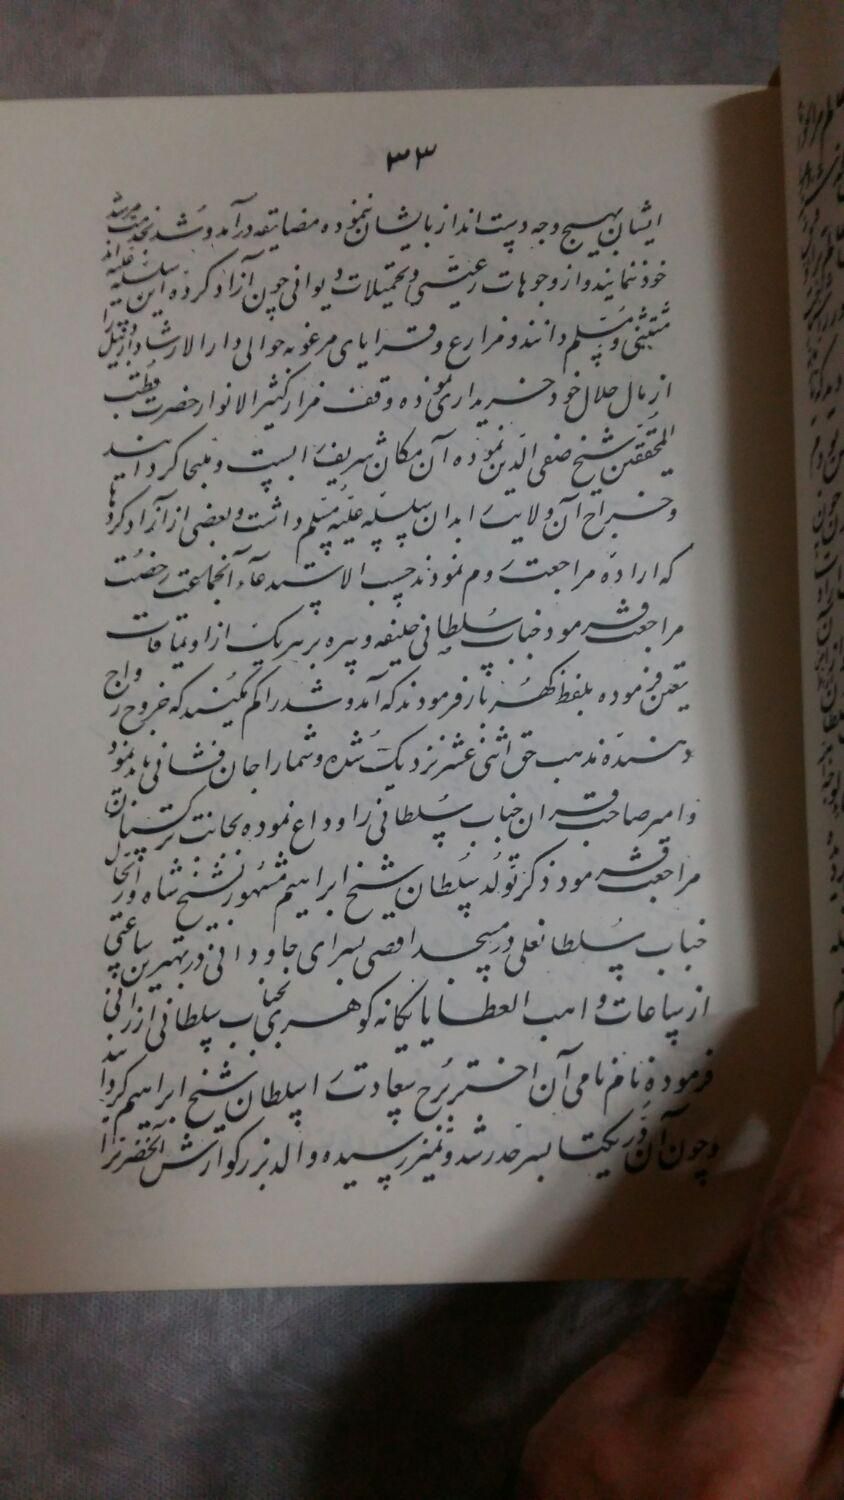 ۳۳
ایشان بهیچ وجه دست انداز بایشان ننموده مضایقه در آمد و شد بخدمت مرشد
خود ننمایند و از وجوهات رعیتی و تحمیلات دیوانی چون آزاد کرده این سلسله علیه اند
مستثنی و مسلم دانند و مزارع و قرایای مرغوبه حوالی دار الارشاد اردبیل را
از مال حلال خود خریداری نموده وقف مزار کثیر الانوار حضرت قطب
المحققین شیخ صفی الدین نموده آن مکان شریف را بست و ملجا گردانیدند
و خراج آن ولایت را بدان سلسله علیه مسلم داشت و بعضی از آزاد کردها
که اراده مراجعت روم نمودند حسب الاستدعاء آنجماعت رخصت
مراجعت فرمود جناب سلطانی خلیفه و پیره بر هر یک از اویماقات
تعیین فرموده بلفظ گهربار فرمودند که آمد و شد را کم نکنید که خروج رواج
دهنده مذهب حق اثنی عشر نزدیک شده و شما را جان فشانی باید نمود
و امیر صاحب قران جناب سلطانی را وداع نموده بجانب ترکستان
مراجعت فرمود ذکر تولد سلطان شیخ ابراهیم مشهور بشیخ شاه و ارتحال
جناب سلطانعلی در مسجد اقصی بسرای جاودانی در بهترین ساعتی
از ساعات واهب العطایا یگانه گوهری بجناب سلطانی ارزانی
فرموده نام نامی آن اختر برج سعادت را سلطان شیخ ابراهیم گردانید
و چون آن در یکتا بسر حد رشد و تمیز رسیده والد بزرگوارش آنحضرت را